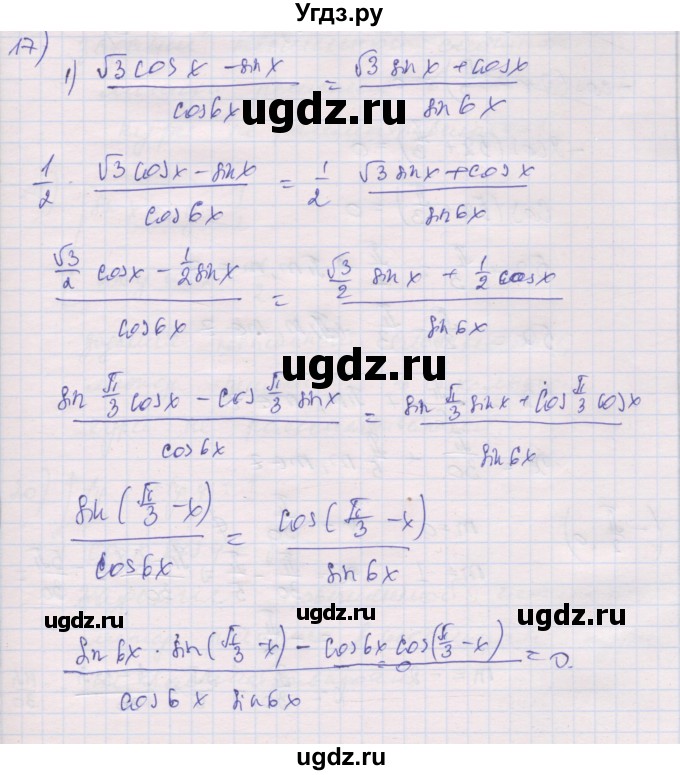 Угдз.ру
17)
1) (√3 cos x - sin x)/(cos6x) = (√3 sin x + cos x)/(sin 6x)
ugdz.ru
1/2 · (√3 cosx - sin x)/(cos 6x) = 1/2 (√3 sin x + cos x)/(sin 6x)
(√3/2 cosx - 1/2 sin x)/(cos 6x) = (√3/2 sin x + 1/2 cosx)/(sin 6x)
ugdz.ru
(sin π/3 cosx - cos π/3 sin x)/(cos 6x) = (sin π/3 sin x + cos π/3 cosx)/(sin 6x)
(sin(π/3 - x))/(cos6x) = (cos(π/3 - x))/(sin 6x)
ugdz.ru ugdz.ru ugdz.ru
(sin 6x · sin(π/3 - x) - cos6x cos(π/3 - x))/(cos6x sin6x) = 0.
ugdz.ru